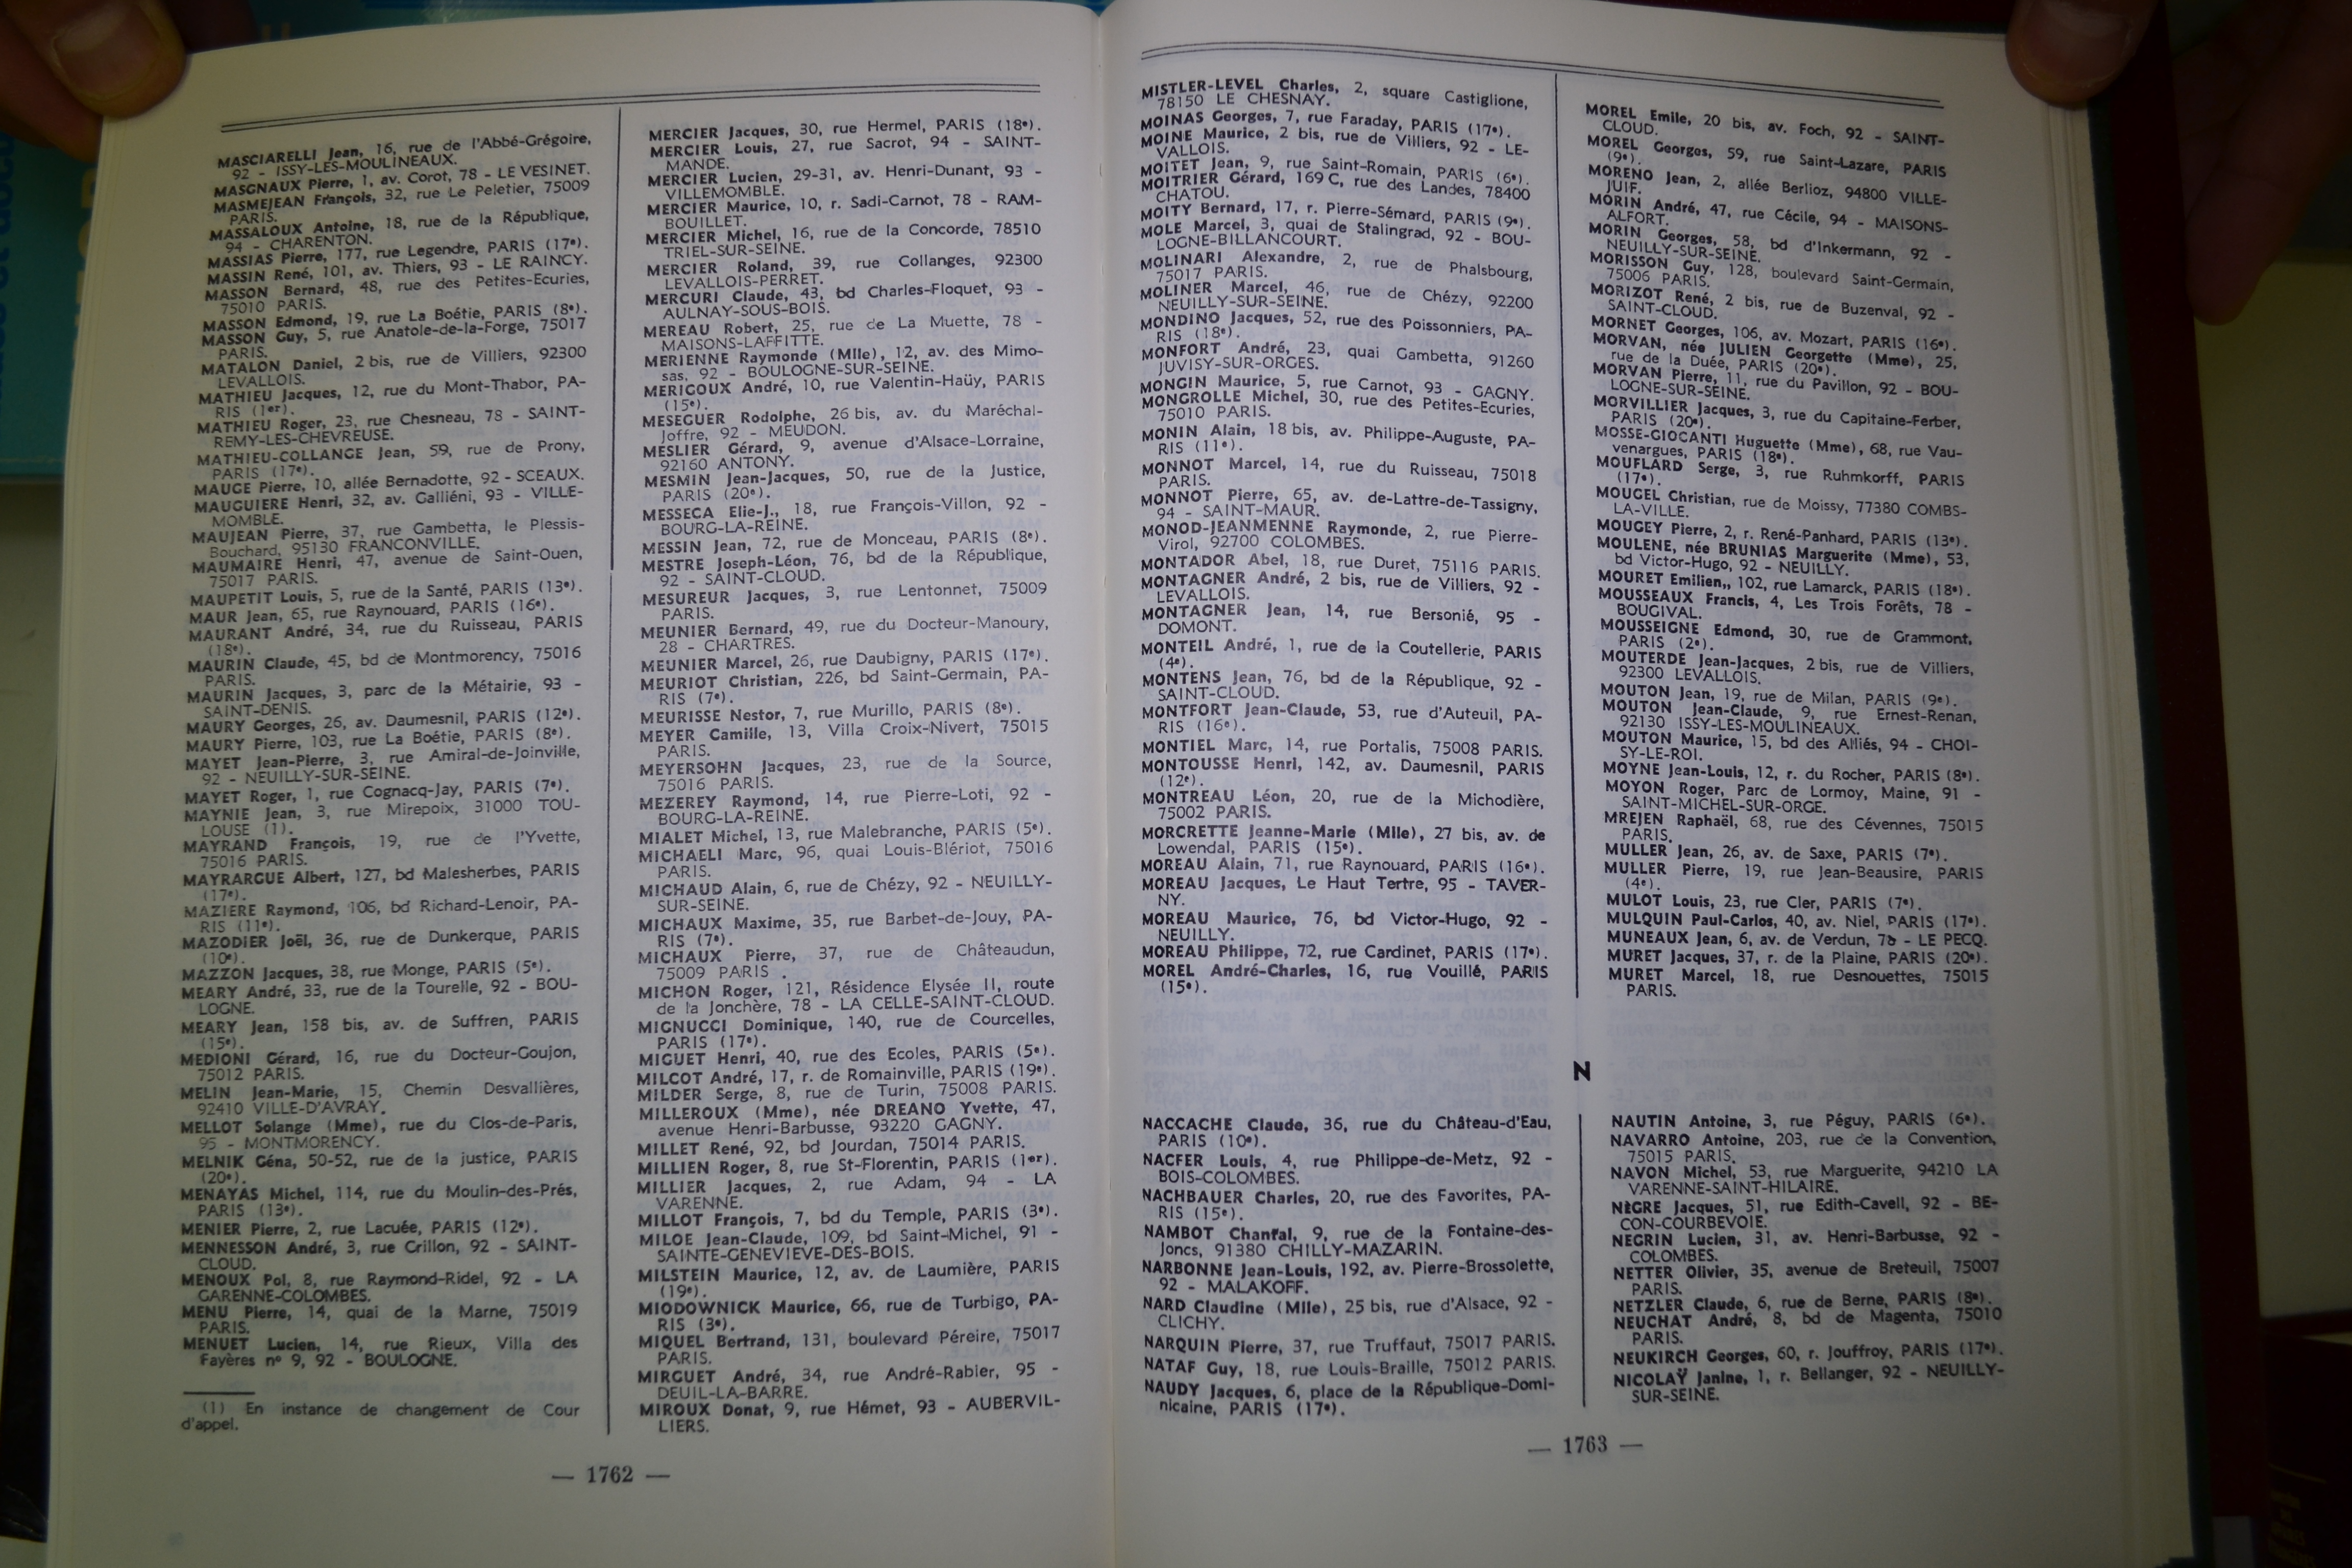 MASCIARELLI Jean, 16, rue de l'Abbé-Grégoire,
92 - ISSY-LES-MOULINEAUX.
MASGNAUX Pierre, 1, av. Corot, 78 - LE VESINET.
MASMEJEAN François, 32, rue Le Peletier, 75009
PARIS.
MASSALOUX Antoine, 18, rue de la République,
94 - CHARENTON.
MASSIAS Pierre, 177, rue Legendre, PARIS (17e).
MASSIN René, 101, av. Thiers, 93 - LE RAINCY.
MASSON Bernard, 48, rue des Petites-Ecuries,
75010 PARIS.
MASSON Edmond, 19, rue La Boétie, PARIS (8e).
MASSON Guy, 5, rue Anatole-de-la-Forge, 75017
PARIS.
MATALON Daniel, 2 bis, rue de Villiers, 92300
LEVALLOIS.
MATHIEU Jacques, 12, rue du Mont-Thabor, PA-
RIS (1er).
MATHIEU Roger, 23, rue Chesneau, 78 - SAINT-
REMY-LES-CHEVREUSE.
MATHIEU-COLLANGE Jean, 59, rue de Prony,
PARIS (17e).
MAUGE Pierre, 10, allée Bernadotte, 92 - SCEAUX.
MAUGUIERE Henri, 32, av. Galliéni, 93 - VILLE-
MOMBLE.
MAUJEAN Pierre, 37, rue Gambetta, le Plessis-
Bouchard, 95130 FRANCONVILLE.
MAUMAIRE Henri, 47, avenue de Saint-Ouen,
75017 PARIS.
MAUPETIT Louis, 5, rue de la Santé, PARIS (13e).
MAUR Jean, 65, rue Raynouard, PARIS (16e).
MAURANT André, 34, rue du Ruisseau, PARIS
(18e).
MAURIN Claude, 45, bd de Montmorency, 75016
PARIS.
MAURIN Jacques, 3, parc de la Métairie, 93 -
SAINT-DENIS.
MAURY Georges, 26, av. Daumesnil, PARIS (12e).
MAURY Pierre, 103, rue La Boétie, PARIS (8e).
MAYET Jean-Pierre, 3, rue Amiral-de-Joinville,
92 - NEUILLY-SUR-SEINE.
MAYET Roger, 1, rue Cognacq-Jay, PARIS (7e).
MAYNIE Jean, 3, rue Mirepoix, 31000 TOU-
LOUSE (1).
MAYRAND François, 19, rue de l'Yvette,
75016 PARIS.
MAYRARGUE Albert, 127, bd Malesherbes, PARIS
(17e).
MAZIERE Raymond, 106, bd Richard-Lenoir, PA-
RIS (11e).
MAZODIER Joël, 36, rue de Dunkerque, PARIS
(10e).
MAZZON Jacques, 38, rue Monge, PARIS (5e).
MEARY André, 33, rue de la Tourelle, 92 - BOU-
LOGNE.
MEARY Jean, 158 bis, av. de Suffren, PARIS
(15e).
MEDIONI Gérard, 16, rue du Docteur-Goujon,
75012 PARIS.
MELIN Jean-Marie, 15, Chemin Desvallières,
92410 VILLE-D'AVRAY.
MELLOT Solange (Mme), rue du Clos-de-Paris,
95 - MONTMORENCY.
MELNIK Géna, 50-52, rue de la justice, PARIS
(20e).
MENAYAS Michel, 114, rue du Moulin-des-Prés,
PARIS (13e).
MENIER Pierre, 2, rue Lacuée, PARIS (12e).
MENNESSON André, 3, rue Crillon, 92 - SAINT-
CLOUD.
MENOUX Pol, 8, rue Raymond-Ridel, 92 - LA
GARENNE-COLOMBES.
MENU Pierre, 14, quai de la Marne, 75019
PARIS.
MENUET Lucien, 14, rue Rieux, Villa des
Fayères nº 9, 92 - BOULOGNE.
(1) En instance de changement de Cour
d'appel.
MERCIER Jacques, 30, rue Hermel, PARIS (18e).
MERCIER Louis, 27, rue Sacrot, 94 - SAINT-
MANDE.
MERCIER Lucien, 29-31, av. Henri-Dunant, 93 -
VILLEMOMBLE.
MERCIER Maurice, 10, r. Sadi-Carnot, 78 - RAM-
BOUILLET.
MERCIER Michel, 16, rue de la Concorde, 78510
TRIEL-SUR-SEINE.
MERCIER Roland, 39, rue Collanges, 92300
LEVALLOIS-PERRET.
MERCURI Claude, 43, bd Charles-Floquet, 93 -
AULNAY-SOUS-BOIS.
MEREAU Robert, 25, rue de La Muette, 78 -
MAISONS-LAFFITTE.
MERIENNE Raymonde (Mlle), 12, av. des Mimo-
sas, 92 - BOULOGNE-SUR-SEINE.
MERIGOUX André, 10, rue Valentin-Haüy, PARIS
(15e).
MESEGUER Rodolphe, 26 bis, av. du Maréchal-
Joffre, 92 - MEUDON.
MESLIER Gérard, 9, avenue d'Alsace-Lorraine,
92160 ANTONY.
MESMIN Jean-Jacques, 50, rue de la Justice,
PARIS (20e).
MESSECA Elie-J., 18, rue François-Villon, 92 -
BOURG-LA-REINE.
MESSIN Jean, 72, rue de Monceau, PARIS (8e).
MESTRE Joseph-Léon, 76, bd de la République,
92 - SAINT-CLOUD.
MESUREUR Jacques, 3, rue Lentonnet, 75009
PARIS.
MEUNIER Bernard, 49, rue du Docteur-Manoury,
28 - CHARTRES.
MEUNIER Marcel, 26, rue Daubigny, PARIS (17e).
MEURIOT Christian, 226, bd Saint-Germain, PA-
RIS (7e).
MEURISSE Nestor, 7, rue Murillo, PARIS (8e).
MEYER Camille, 13, Villa Croix-Nivert, 75015
PARIS.
MEYERSOHN Jacques, 23, rue de la Source,
75016 PARIS.
MEZEREY Raymond, 14, rue Pierre-Loti, 92 -
BOURG-LA-REINE.
MIALET Michel, 13, rue Malebranche, PARIS (5e).
MICHAELI Marc, 96, quai Louis-Blériot, 75016
PARIS.
MICHAUD Alain, 6, rue de Chézy, 92 - NEUILLY-
SUR-SEINE.
MICHAUX Maxime, 35, rue Barbet-de-Jouy, PA-
RIS (7e).
MICHAUX Pierre, 37, rue de Châteaudun,
75009 PARIS .
MICHON Roger, 121, Résidence Elysée II, route
de la Jonchère, 78 - LA CELLE-SAINT-CLOUD.
MIGNUCCI Dominique, 140, rue de Courcelles,
PARIS (17e).
MIGUET Henri, 40, rue des Ecoles, PARIS (5e).
MILCOT André, 17, r. de Romainville, PARIS (19e).
MILDER Serge, 8, rue de Turin, 75008 PARIS.
MILLEROUX (Mme), née DREANO Yvette, 47,
avenue Henri-Barbusse, 93220 GAGNY.
MILLET René, 92, bd Jourdan, 75014 PARIS.
MILLIEN Roger, 8, rue St-Florentin, PARIS (1er).
MILLIER Jacques, 2, rue Adam, 94 - LA
VARENNE.
MILLOT François, 7, bd du Temple, PARIS (3e).
MILOE Jean-Claude, 109, bd Saint-Michel, 91 -
SAINTE-GENEVIEVE-DES-BOIS.
MILSTEIN Maurice, 12, av. de Laumière, PARIS
(19e).
MIODOWNICK Maurice, 66, rue de Turbigo, PA-
RIS (3e).
MIQUEL Bertrand, 131, boulevard Péreire, 75017
PARIS.
MIRGUET André, 34, rue André-Rabier, 95 -
DEUIL-LA-BARRE.
MIROUX Donat, 9, rue Hémet, 93 - AUBERVIL-
LIERS.
— 1762 —
MISTLER-LEVEL Charles, 2, square Castiglione,
78150 LE CHESNAY.
MOINAS Georges, 7, rue Faraday, PARIS (17e).
MOINE Maurice, 2 bis, rue de Villiers, 92 - LE-
VALLOIS.
MOITET Jean, 9, rue Saint-Romain, PARIS (6e).
MOITRIER Gérard, 169 C, rue des Landes, 78400
CHATOU.
MOITY Bernard, 17, r. Pierre-Sémard, PARIS (9e).
MOLE Marcel, 3, quai de Stalingrad, 92 - BOU-
LOGNE-BILLANCOURT.
MOLINARI Alexandre, 2, rue de Phalsbourg,
75017 PARIS.
MOLINER Marcel, 46, rue de Chézy, 92200
NEUILLY-SUR-SEINE.
MONDINO Jacques, 52, rue des Poissonniers, PA-
RIS (18e).
MONFORT André, 23, quai Gambetta, 91260
JUVISY-SUR-ORGES.
MONGIN Maurice, 5, rue Carnot, 93 - GAGNY.
MONGROLLE Michel, 30, rue des Petites-Ecuries,
75010 PARIS.
MONIN Alain, 18 bis, av. Philippe-Auguste, PA-
RIS (11e).
MONNOT Marcel, 14, rue du Ruisseau, 75018
PARIS.
MONNOT Pierre, 65, av. de-Lattre-de-Tassigny,
94 - SAINT-MAUR.
MONOD-JEANMENNE Raymonde, 2, rue Pierre-
Virol, 92700 COLOMBES.
MONTADOR Abel, 18, rue Duret, 75116 PARIS.
MONTAGNER André, 2 bis, rue de Villiers, 92 -
LEVALLOIS.
MONTAGNER Jean, 14, rue Bersonié, 95 -
DOMONT.
MONTEIL André, 1, rue de la Coutellerie, PARIS
(4e).
MONTENS Jean, 76, bd de la République, 92 -
SAINT-CLOUD.
MONTFORT Jean-Claude, 53, rue d'Auteuil, PA-
RIS (16e).
MONTIEL Marc, 14, rue Portalis, 75008 PARIS.
MONTOUSSE Henri, 142, av. Daumesnil, PARIS
(12e).
MONTREAU Léon, 20, rue de la Michodière,
75002 PARIS.
MORCRETTE Jeanne-Marie (Mlle), 27 bis, av. de
Lowendal, PARIS (15e).
MOREAU Alain, 71, rue Raynouard, PARIS (16e).
MOREAU Jacques, Le Haut Tertre, 95 - TAVER-
NY.
MOREAU Maurice, 76, bd Victor-Hugo, 92 -
NEUILLY.
MOREAU Philippe, 72, rue Cardinet, PARIS (17e).
MOREL André-Charles, 16, rue Vouillé, PARIS
(15e).
MOREL Emile, 20 bis, av. Foch, 92 - SAINT-
CLOUD.
MOREL Georges, 59, rue Saint-Lazare, PARIS
(9e).
MORENO Jean, 2, allée Berlioz, 94800 VILLE-
JUIF.
MORIN André, 47, rue Cécile, 94 - MAISONS-
ALFORT.
MORIN Georges, 58, bd d'Inkermann, 92 -
NEUILLY-SUR-SEINE.
MORISSON Guy, 128, boulevard Saint-Germain,
75006 PARIS.
MORIZOT René, 2 bis, rue de Buzenval, 92 -
SAINT-CLOUD.
MORNET Georges, 106, av. Mozart, PARIS (16e).
MORVAN, née JULIEN Georgette (Mme), 25,
rue de la Duée, PARIS (20e).
MORVAN Pierre, 11, rue du Pavillon, 92 - BOU-
LOGNE-SUR-SEINE.
MORVILLIER Jacques, 3, rue du Capitaine-Ferber,
PARIS (20e).
MOSSE-GIOCANTI Huguette (Mme), 68, rue Vau-
venargues, PARIS (18e).
MOUFLARD Serge, 3, rue Ruhmkorff, PARIS
(17e).
MOUGEL Christian, rue de Moissy, 77380 COMBS-
LA-VILLE.
MOUGEY Pierre, 2, r. René-Panhard, PARIS (13e).
MOULENE, née BRUNIAS Marguerite (Mme), 53,
bd Victor-Hugo, 92 - NEUILLY.
MOURET Emilien,, 102, rue Lamarck, PARIS (18e).
MOUSSEAUX Francis, 4, Les Trois Forêts, 78 -
BOUGIVAL.
MOUSSEIGNE Edmond, 30, rue de Grammont,
PARIS (2e).
MOUTERDE Jean-Jacques, 2 bis, rue de Villiers,
92300 LEVALLOIS.
MOUTON Jean, 19, rue de Milan, PARIS (9e).
MOUTON Jean-Claude, 9, rue Ernest-Renan,
92130 ISSY-LES-MOULINEAUX.
MOUTON Maurice, 15, bd des Alliés, 94 - CHOI-
SY-LE-ROI.
MOYNE Jean-Louis, 12, r. du Rocher, PARIS (8e).
MOYON Roger, Parc de Lormoy, Maine, 91 -
SAINT-MICHEL-SUR-ORGE.
MREJEN Raphaël, 68, rue des Cévennes, 75015
PARIS.
MULLER Jean, 26, av. de Saxe, PARIS (7e).
MULLER Pierre, 19, rue Jean-Beausire, PARIS
(4e).
MULOT Louis, 23, rue Cler, PARIS (7e).
MULQUIN Paul-Carlos, 40, av. Niel, PARIS (17e).
MUNEAUX Jean, 6, av. de Verdun, 78 - LE PECQ.
MURET Jacques, 37, r. de la Plaine, PARIS (20e).
MURET Marcel, 18, rue Desnouettes, 75015
PARIS.
N
NACCACHE Claude, 36, rue du Château-d'Eau,
PARIS (10e).
NACFER Louis, 4, rue Philippe-de-Metz, 92 -
BOIS-COLOMBES.
NACHBAUER Charles, 20, rue des Favorites, PA-
RIS (15e).
NAMBOT Chantal, 9, rue de la Fontaine-des-
Joncs, 91380 CHILLY-MAZARIN.
NARBONNE Jean-Louis, 192, av. Pierre-Brossolette,
92 - MALAKOFF.
NARD Claudine (Mlle), 25 bis, rue d'Alsace, 92 -
CLICHY.
NARQUIN Pierre, 37, rue Truffaut, 75017 PARIS.
NATAF Guy, 18, rue Louis-Braille, 75012 PARIS.
NAUDY Jacques, 6, place de la République-Domi-
nicaine, PARIS (17e).
NAUTIN Antoine, 3, rue Péguy, PARIS (6e).
NAVARRO Antoine, 203, rue de la Convention,
75015 PARIS.
NAVON Michel, 53, rue Marguerite, 94210 LA
VARENNE-SAINT-HILAIRE.
NÈGRE Jacques, 51, rue Edith-Cavell, 92 - BE-
CON-COURBEVOIE.
NEGRIN Lucien, 31, av. Henri-Barbusse, 92 -
COLOMBES.
NETTER Olivier, 35, avenue de Breteuil, 75007
PARIS.
NETZLER Claude, 6, rue de Berne, PARIS (8e).
NEUCHAT André, 8, bd de Magenta, 75010
PARIS.
NEUKIRCH Georges, 60, r. Jouffroy, PARIS (17e).
NICOLAŸ Janine, 1, r. Bellanger, 92 - NEUILLY-
SUR-SEINE.
— 1763 —